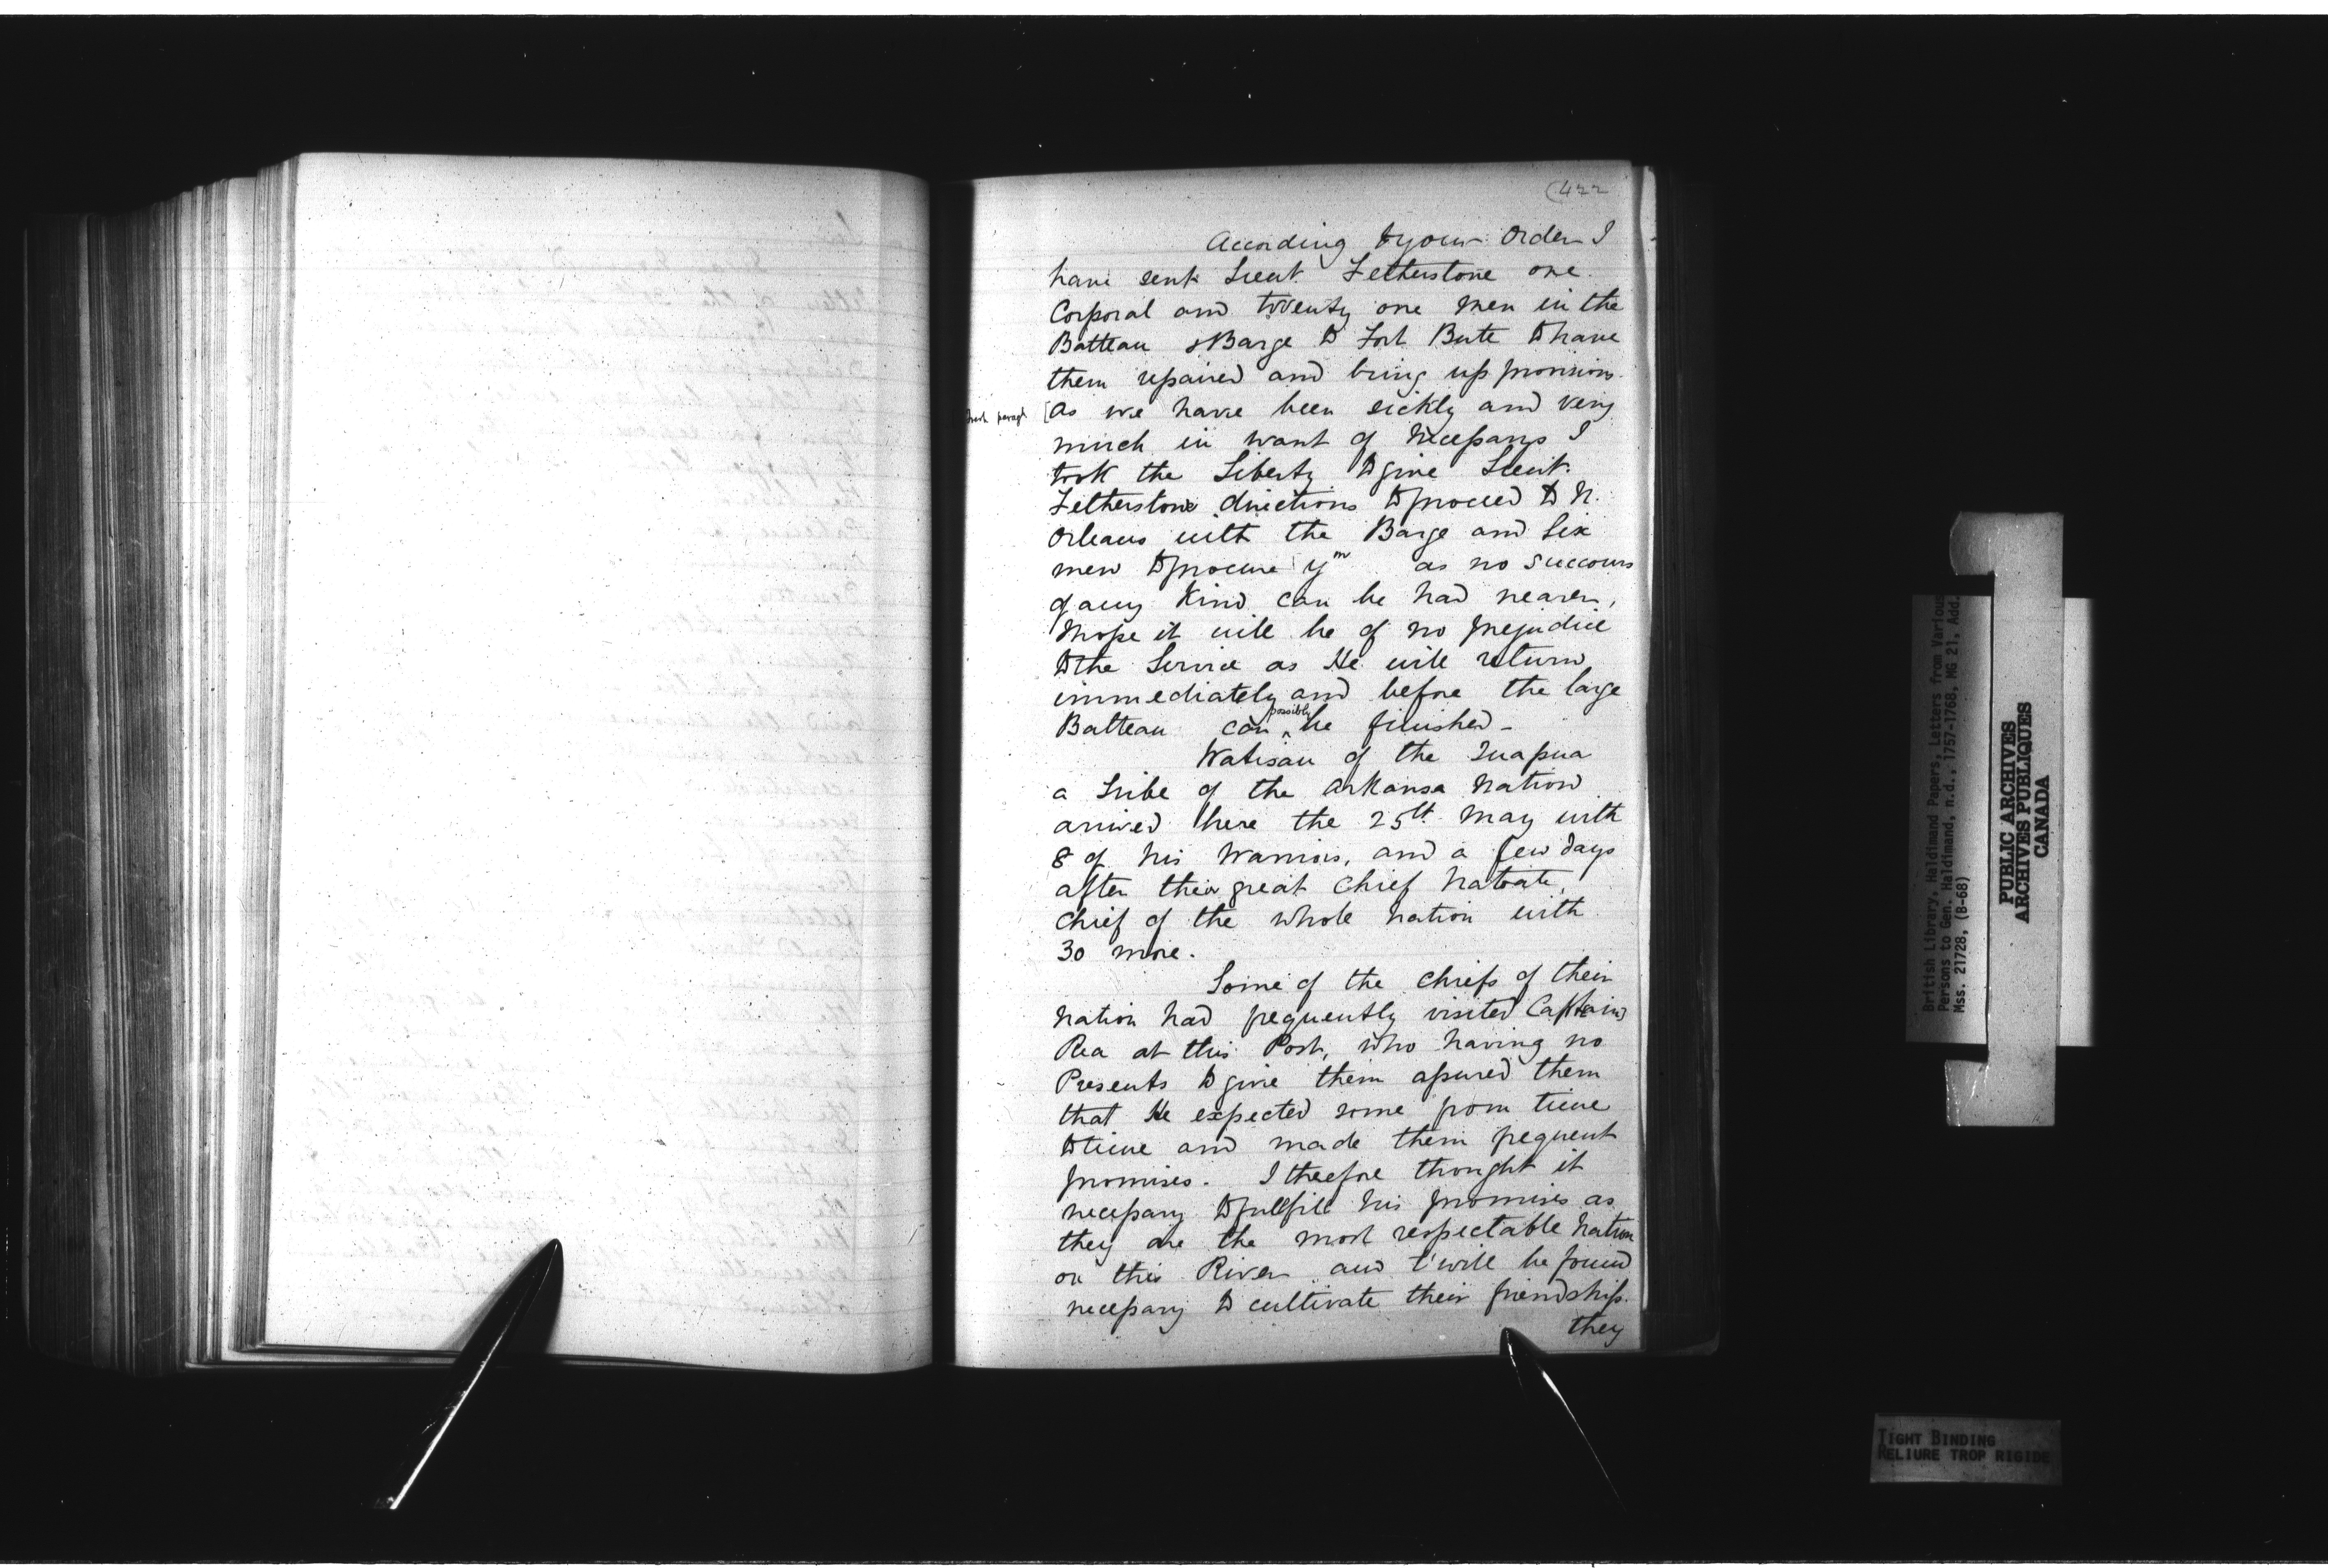 (422
According to your Order I
have sent Lieut. Fetherstone one
Corporal and twenty one Men in the
Batteau & Barge to Fort Bute to have
them repaired and bring up provisions.
fresh paragh [As we have been sickly and very
much in want of Necessarys I
took the Liberty to give Lieut.
Fetherstone directions to proceed to N.
Orleans with the Barge and Six
men to procure ym as no Succours
of any Kind can be had nearer,
I hope it will be of no prejudice
to the Service as He will return
immediately and before the large
Batteau can possibly be finished -
Watisau of the Quapua
a Tribe of the Arkansa Nation
arrived here the 25th May with
8 of his Warriors, and a few days
after their great Chief Natoate,
Chief of the whole Nation with
30 more.
Some of the Chiefs of their
Nation had frequently visited Captain
Rea at this Post, who having no
Presents to give them assured them
that He expected some from time
to time and made them frequent
promises. I therefore thought it
necessary to fullfill his promises as
they are the most respectable Nation
on this River and t'will be found
necessary to cultivate their friendship.
they
British Library, Haldimand Papers, Letters from Various
Persons to Gen. Haldimand, n.d., 1757-1768, MG 21, Add.
Mss. 21728, (B-68)
PUBLIC ARCHIVES
ARCHIVES PUBLIQUES
CANADA
TIGHT BINDING
RELIURE TROP RIGIDE